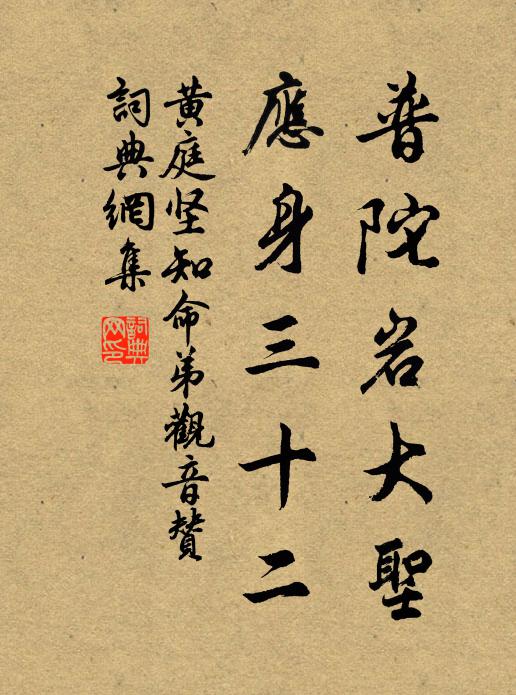 普陀岩大聖
應身三十二
黄庭坚知命弟觀音贊
詞典網集
詞典網印